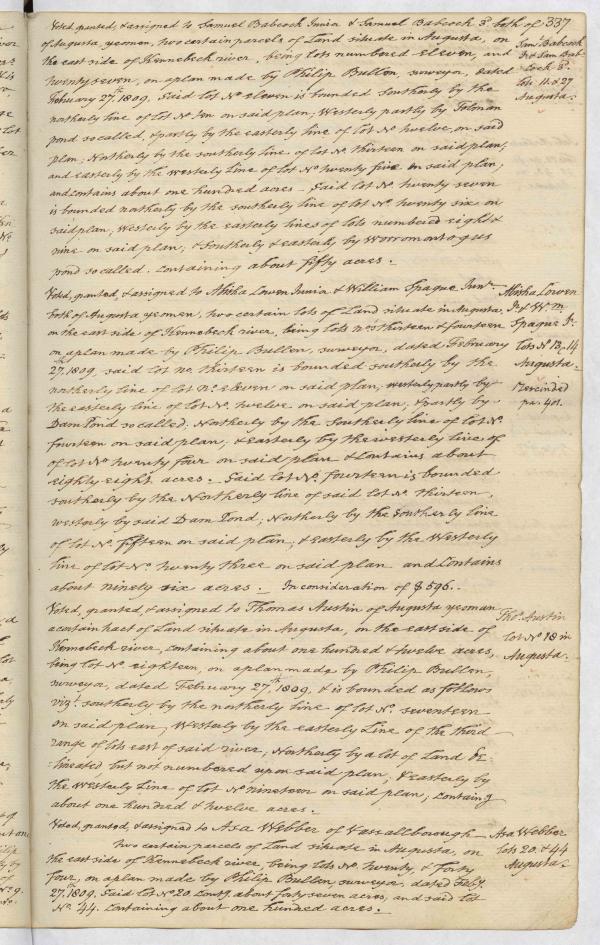 337
Voted, granted, & assigned to Samuel Babcock Junior & Samuel Babcock 3d both of
of Augusta yeomen, two certain parcels of Land situate in Augusta, on
the east side of Kennebeck river, being lots numbered eleven, and
twenty seven, on a plan made by Philip Bullen, surveyor, dated
February 27th 1809, said lot No eleven is bounded southerly by the
northerly line of lot No ten on said plan, Westerly partly by Tolman
pond so called, & partly by the easterly line of lot No twelve, on said
plan, Northerly by the southerly line of lot No thirteen on said plan,
and easterly by the westerly line of lot No twenty five on said plan,
and contains about one hundred acres - Said lot No twenty seven
is bounded northerly by the southerly line of lot No twenty six on
said plan, Westerly by the easterly lines of lots numbered eight &
nine on said plan, & Southerly & easterly by Worromontogus
pond so called. Containing about fifty acres.
Saml Babcock
Jr & Sam. Bab-
cock 3d
lots 11 & 27
Augusta.
Voted, granted, & assigned to Abisha Cowen Junior & William Spague Junr
both of Augusta yeomen, two certain lots of Land situate in Augusta,
on the east side of Kennebeck river, being lots nos thirteen & fourteen
on a plan made by Philip Bullen, surveyor, dated February
27th 1809, said lot no thirteen is bounded southerly by the
northerly line of lot no eleven on said plan, westerly partly by
the easterly line of lot No. twelve on said plan, & partly by
Dam Pond so called, Northerly by the Southerly line of lot No
fourteen on said plan, & Easterly by the westerly line of
of lot No twenty four on said plan & Contains about
eighty eight acres. Said lot No fourteen is bounded
southerly by the Northerly line of said lot No thirteen,
westerly by said Dam Pond, Northerly by the Southerly line
of lot No. fifteen on said plan, & easterly by the Westerly
line of lot No. twenty three on said plan and Contains
about ninety six acres. In consideration of $596.
Abisha Cowen
Jr & Wm
Spague Jr
lots No 13 & 14
Augusta.
Rescinded
pa. 401.
Voted, granted, & assigned to Thomas Austin of Augusta yeoman
a certain tract of Land situate in Augusta, on the east side of
Kennebeck river, containing about one hundred & twelve acres,
being lot No. eighteen, on a plan made by Philip Bullen,
surveyor, dated February 27th 1809, & is bounded as follows
vizt. southerly by the northerly line of lot No seventeen
on said plan, Westerly by the easterly Line of the third
range of lots east of said river, Northerly by a lot of Land de-
lineated but not numbered upon said plan, & easterly by
the Westerly Line of lot No nineteen on said plan, Containg
about one hundred & twelve acres.
Thos. Austin
lot No 18 in
Augusta.
Voted, granted, & assigned to Asa Webber of Vassallborough
two certain parcels of Land situate in Augusta, on
the east side of Kennebeck river, being lots No. twenty, & forty
four, on a plan made by Philip Bullen, surveyor, dated Feby.
27th 1809, Said lot No 20. Contg. about forty seven acres, and said lot
No. 44. Containing about one hundred acres.
Asa Webber
lots 20. & 44
Augusta.